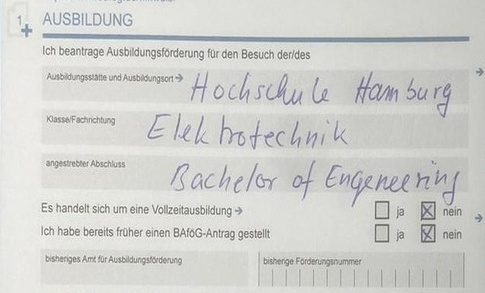 1 AUSBILDUNG
Ich beantrage Ausbildungsförderung für den Besuch der/des
Ausbildungsstätte und Ausbildungsort → Hochschule Hamburg
Klasse/Fachrichtung Elektrotechnik
angestrebter Abschluss Bachelor of Engeneering
Es handelt sich um eine Vollzeitausbildung → ☐ ja ☒ nein
Ich habe bereits früher einen BAföG-Antrag gestellt ☐ ja ☒ nein
bisheriges Amt für Ausbildungsförderung bisherige Förderungsnummer